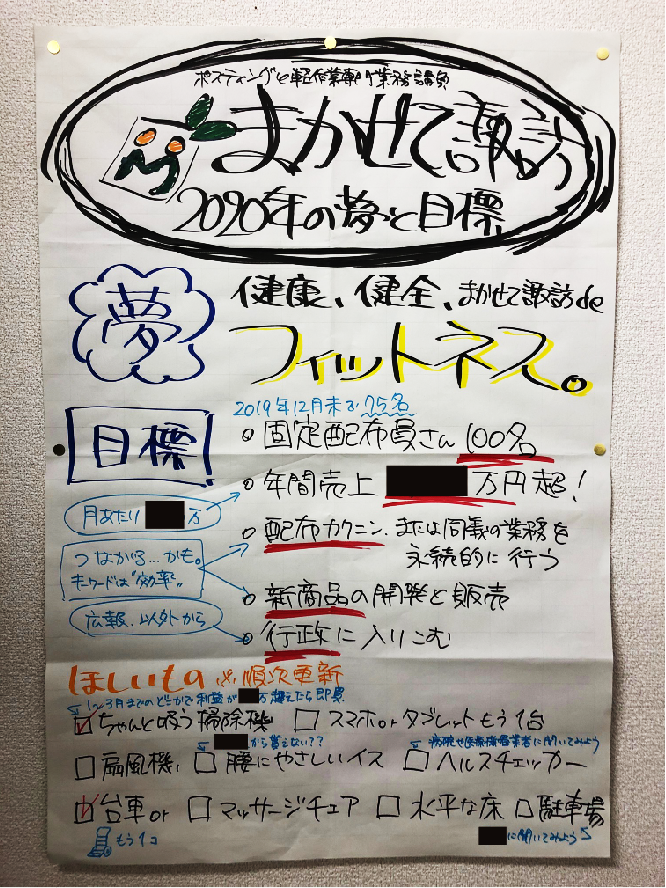 ポスティングと軽作業専門業務請負
まかせて諏訪
2020年の夢と目標
夢
健康、健全、まかせて諏訪de
フィットネス。
目標
2019年12月末で75名
固定配布員さん100名
年間売上 万円超!
月あたり 万
配布カクニン、または同儀の業務を
永続的に行う
つながる…かも。
キーワードは"効率"
新商品の開発と販売
広報、以外から
行政に入りこむ
ほしいもの 順次更新
1~3月までのどこかで利益が 万超えたら即買
ちゃんと吸う掃除機 スマホorタブレットもう1台
から貰えない??
扇風機 腰にやさしいイス ヘルスチェッカー
台車or マッサージチェア 水平な床 駐車場
もう1コ
に聞いてみよう